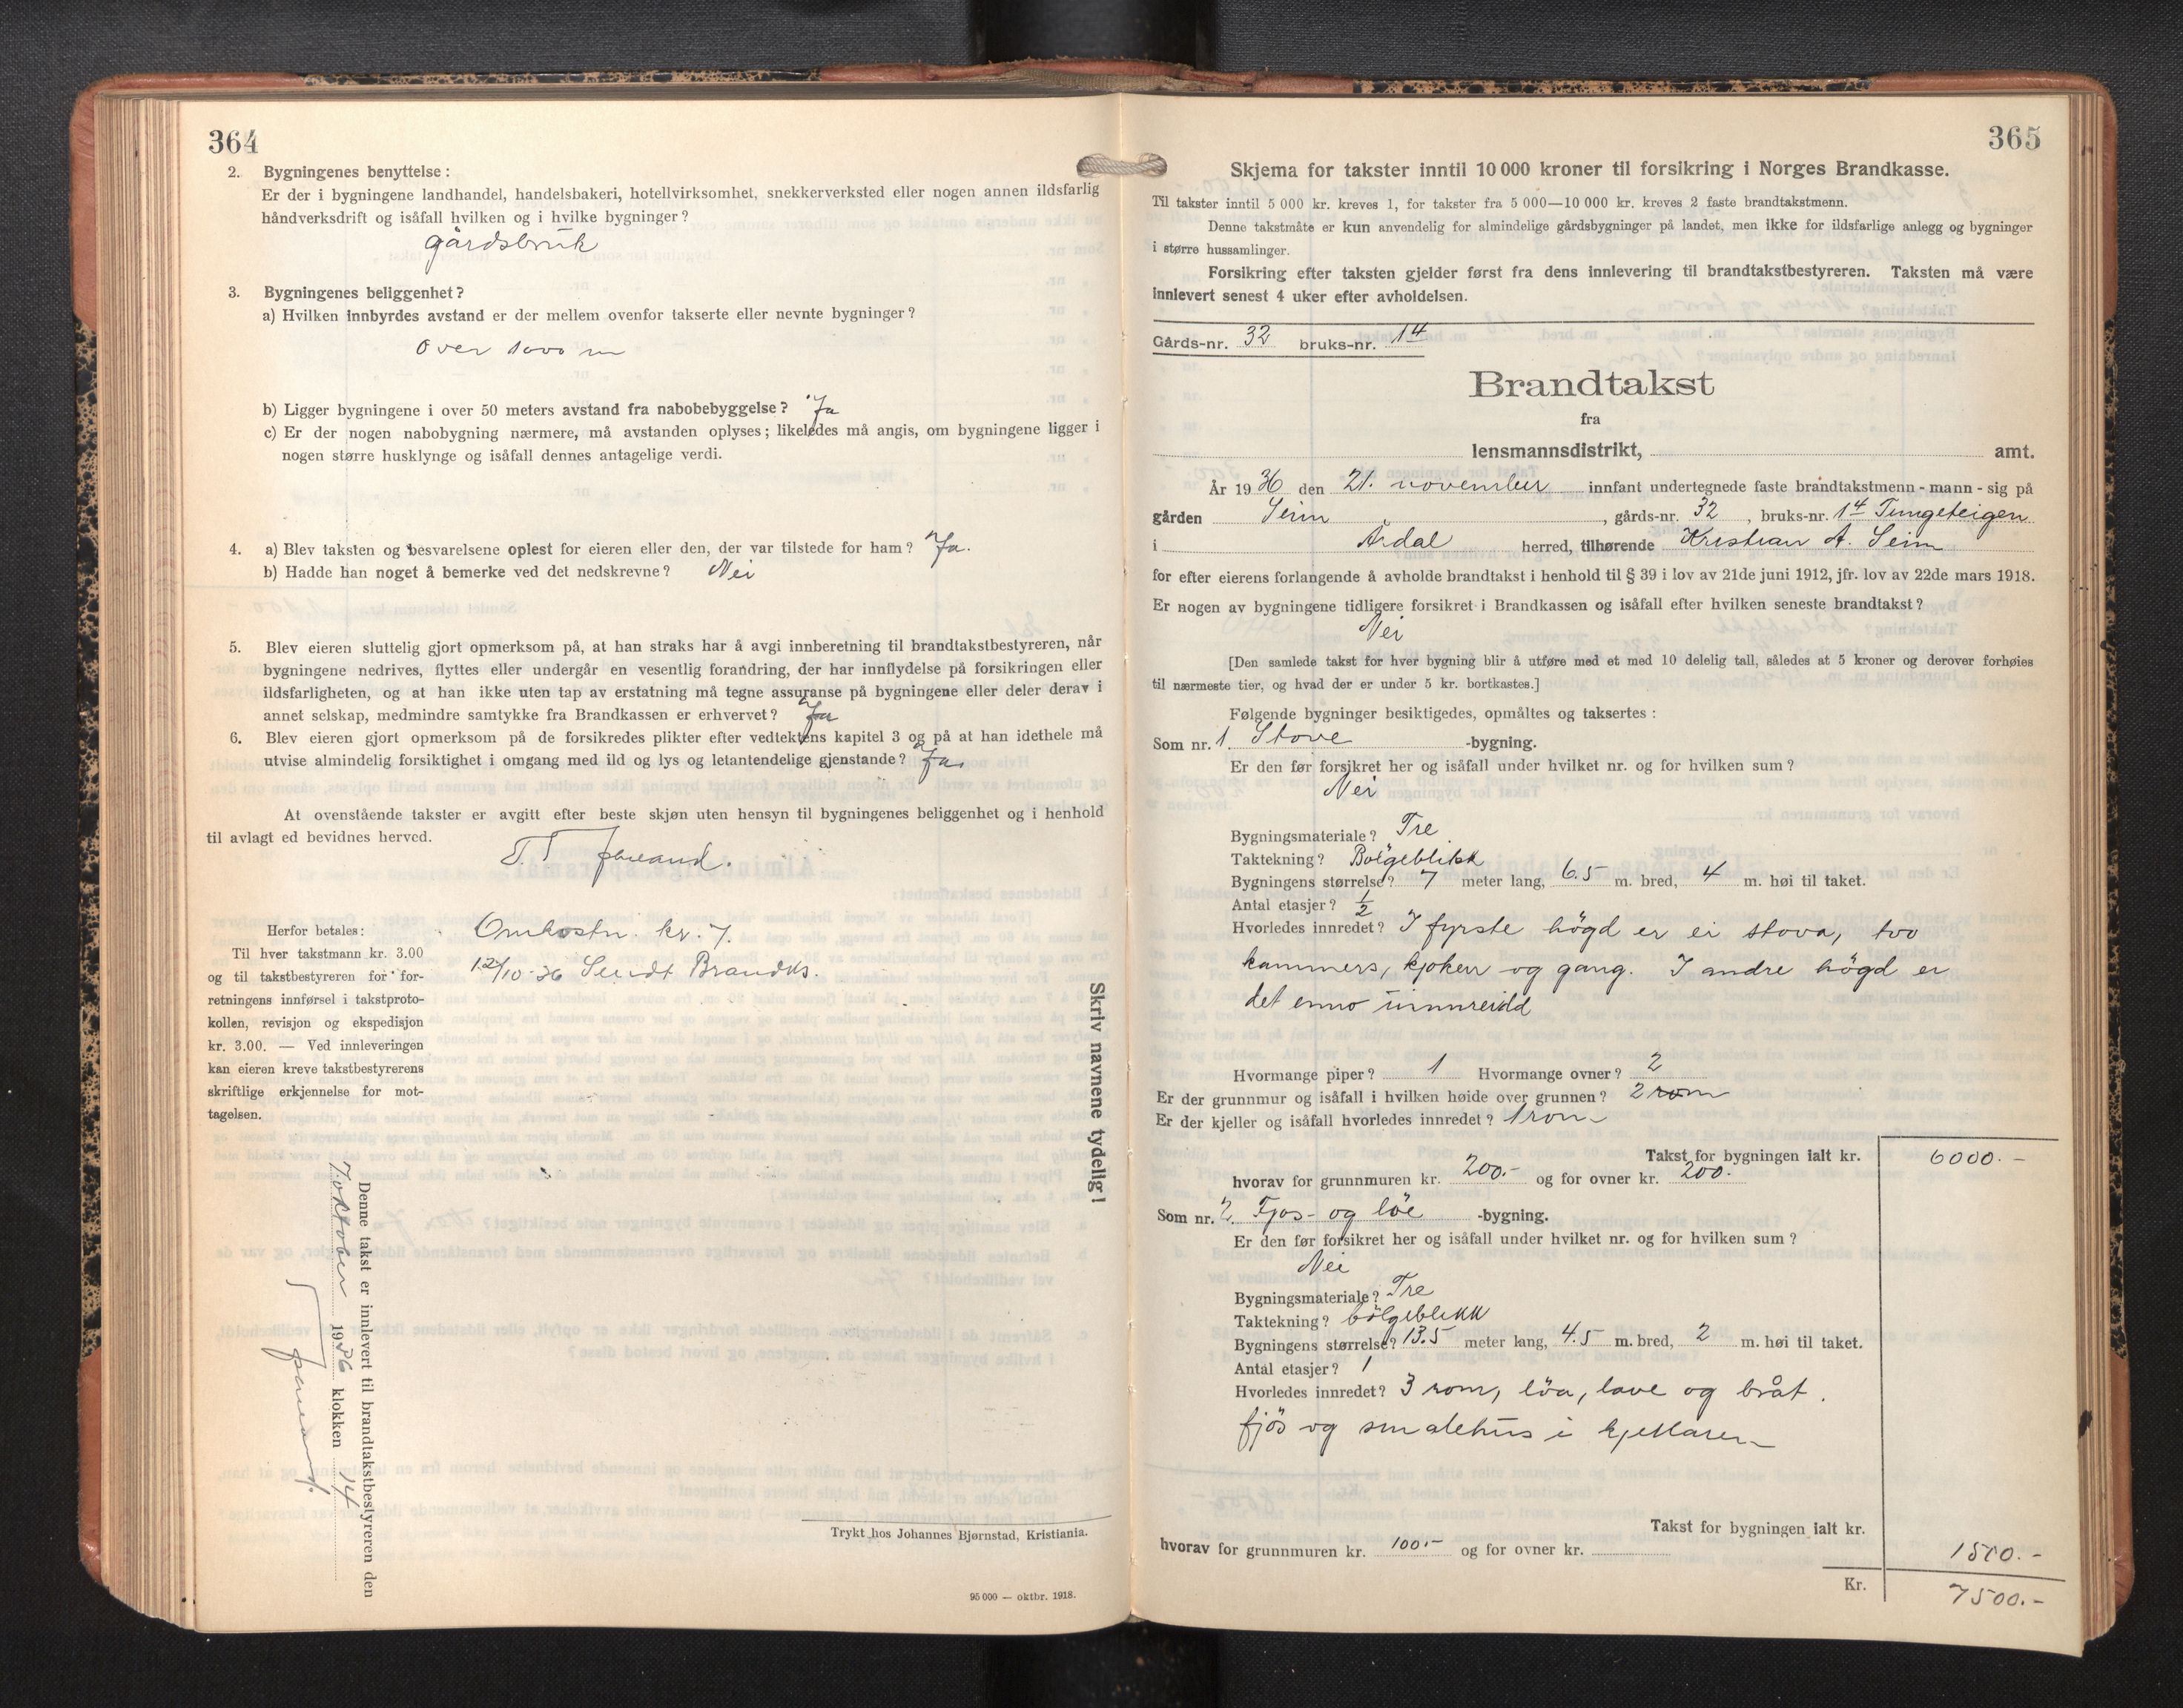 364
2. Bygningenes benyttelse :
Er der i bygningene landhandel, handelsbakeri, hotellvirksomhet, snekkerverksted eller nogen annen ildsfarlig
håndverksdrift og isåfall hvilken og i hvilke bygninger ?
gårdsbruk
3. Bygningenes beliggenhet ?
a) Hvilken innbyrdes avstand er der mellem ovenfor takserte eller nevnte bygninger ?
Over 1000 m
b) Ligger bygningene i over 50 meters avstand fra nabobebyggelse ? Ja
c) Er der nogen nabobygning nærmere, må avstanden oplyses ; likeledes må angis, om bygningene ligger i
nogen større husklynge og isåfall dennes antagelige verdi.
4. a) Blev taksten og besvarelsene oplest for eieren eller den, der var tilstede for ham ? Ja.
b) Hadde han noget å bemerke ved det nedskrevne ? Nei
5. Blev eieren sluttelig gjort opmerksom på, at han straks har å avgi innberetning til brandtakstbestyreren, når
bygningene nedrives, flyttes eller undergår en vesentlig forandring, der har innflydelse på forsikringen eller
ildsfarligheten, og at han ikke uten tap av erstatning må tegne assuranse på bygningene eller deler derav i
annet selskap, medmindre samtykke fra Brandkassen er erhvervet ? Ja
6. Blev eieren gjort opmerksom på de forsikredes plikter efter vedtektens kapitel 3 og på at han idethele må
utvise almindelig forsiktighet i omgang med ild og lys og letantendelige gjenstande ? Ja.
At ovenstående takster er avgitt efter beste skjøn uten hensyn til bygningenes beliggenhet og i henhold
til avlagt ed bevidnes herved.
Herfor betales :
Til hver takstmann kr. 3.00
og til takstbestyreren for for-
retningens innførsel i takstproto-
kollen, revisjon og ekspedisjon
kr. 3.00. — Ved innleveringen
kan eieren kreve takstbestyrerens
skriftlige erkjennelse for mot-
tagelsen.
Omkostn. kr. 7.
12/10-36 Sendt Brandks.
Skriv navnene tydelig !
Denne takst er innlevert til brandtakstbestyreren den
7 oktober 1936 klokken 14
Trykt hos Johannes Bjørnstad, Kristiania.
95 000 — oktbr. 1918.
365
Skjema for takster inntil 10 000 kroner til forsikring i Norges Brandkasse.
Til takster inntil 5 000 kr. kreves 1, for takster fra 5 000—10 000 kr. kreves 2 faste brandtakstmenn.
Denne takstmåte er kun anvendelig for almindelige gårdsbygninger på landet, men ikke for ildsfarlige anlegg og bygninger
i større hussamlinger.
Forsikring efter taksten gjelder først fra dens innlevering til brandtakstbestyreren. Taksten må være
innlevert senest 4 uker efter avholdelsen.
Gårds-nr. 32 bruks-nr. 14
Brandtakst
fra
lensmannsdistrikt, amt.
År 1936 den 21. november innfant undertegnede faste brandtakstmenn - mann - sig på
gården Seim , gårds-nr. 32 , bruks-nr. 14 Tungeteigen
i Årdal herred, tilhørende Kristian A. Seim
for efter eierens forlangende å avholde brandtakst i henhold til § 39 i lov av 21de juni 1912, jfr. lov av 22de mars 1918.
Er nogen av bygningene tidligere forsikret i Brandkassen og isåfall efter hvilken seneste brandtakst ?
Nei
[Den samlede takst for hver bygning blir å utføre med et med 10 delelig tall, således at 5 kroner og derover forhøies
til nærmeste tier, og hvad der er under 5 kr. bortkastes.]
Følgende bygninger besiktigedes, opmåltes og taksertes :
Som nr. 1. Stove -bygning.
Er den før forsikret her og isåfall under hvilket nr. og for hvilken sum ?
Nei
Bygningsmateriale ? Tre
Taktekning ? Bølgeblikk
Bygningens størrelse ? 7 meter lang, 6.5 m. bred, 4 m. høi til taket.
Antal etasjer ? 1/2
Hvorledes innredet ? I fyrste högd er ei stova, two
kammers, kjøken og gang. I andre högd er
det enno uinnreidd
Hvormange piper ? 1 Hvormange ovner ? 2
Er der grunnmur og isåfall i hvilken høide over grunnen ? 2 rom
Er der kjeller og isåfall hvorledes innredet ? 1 rom
Takst for bygningen ialt kr. 6000.-
hvorav for grunnmuren kr. 200.- og for ovner kr. 200.-
Som nr. 2. Fjos- og löe -bygning.
Er den før forsikret her og isåfall under hvilket nr. og for hvilken sum ?
Nei
Bygningsmateriale ? Tre
Taktekning ? bölgeblikk
Bygningens størrelse ? 13.5 meter lang, 4.5 m. bred, 2 m. høi til taket.
Antal etasjer ? 1
Hvorledes innredet ? 3 rom, löa, lave og bråt.
fjös og smalehus i kjellaren
Takst for bygningen ialt kr.
hvorav for grunnmuren kr. 100.- og for ovner kr. 1500.-
Kr. 7500.-